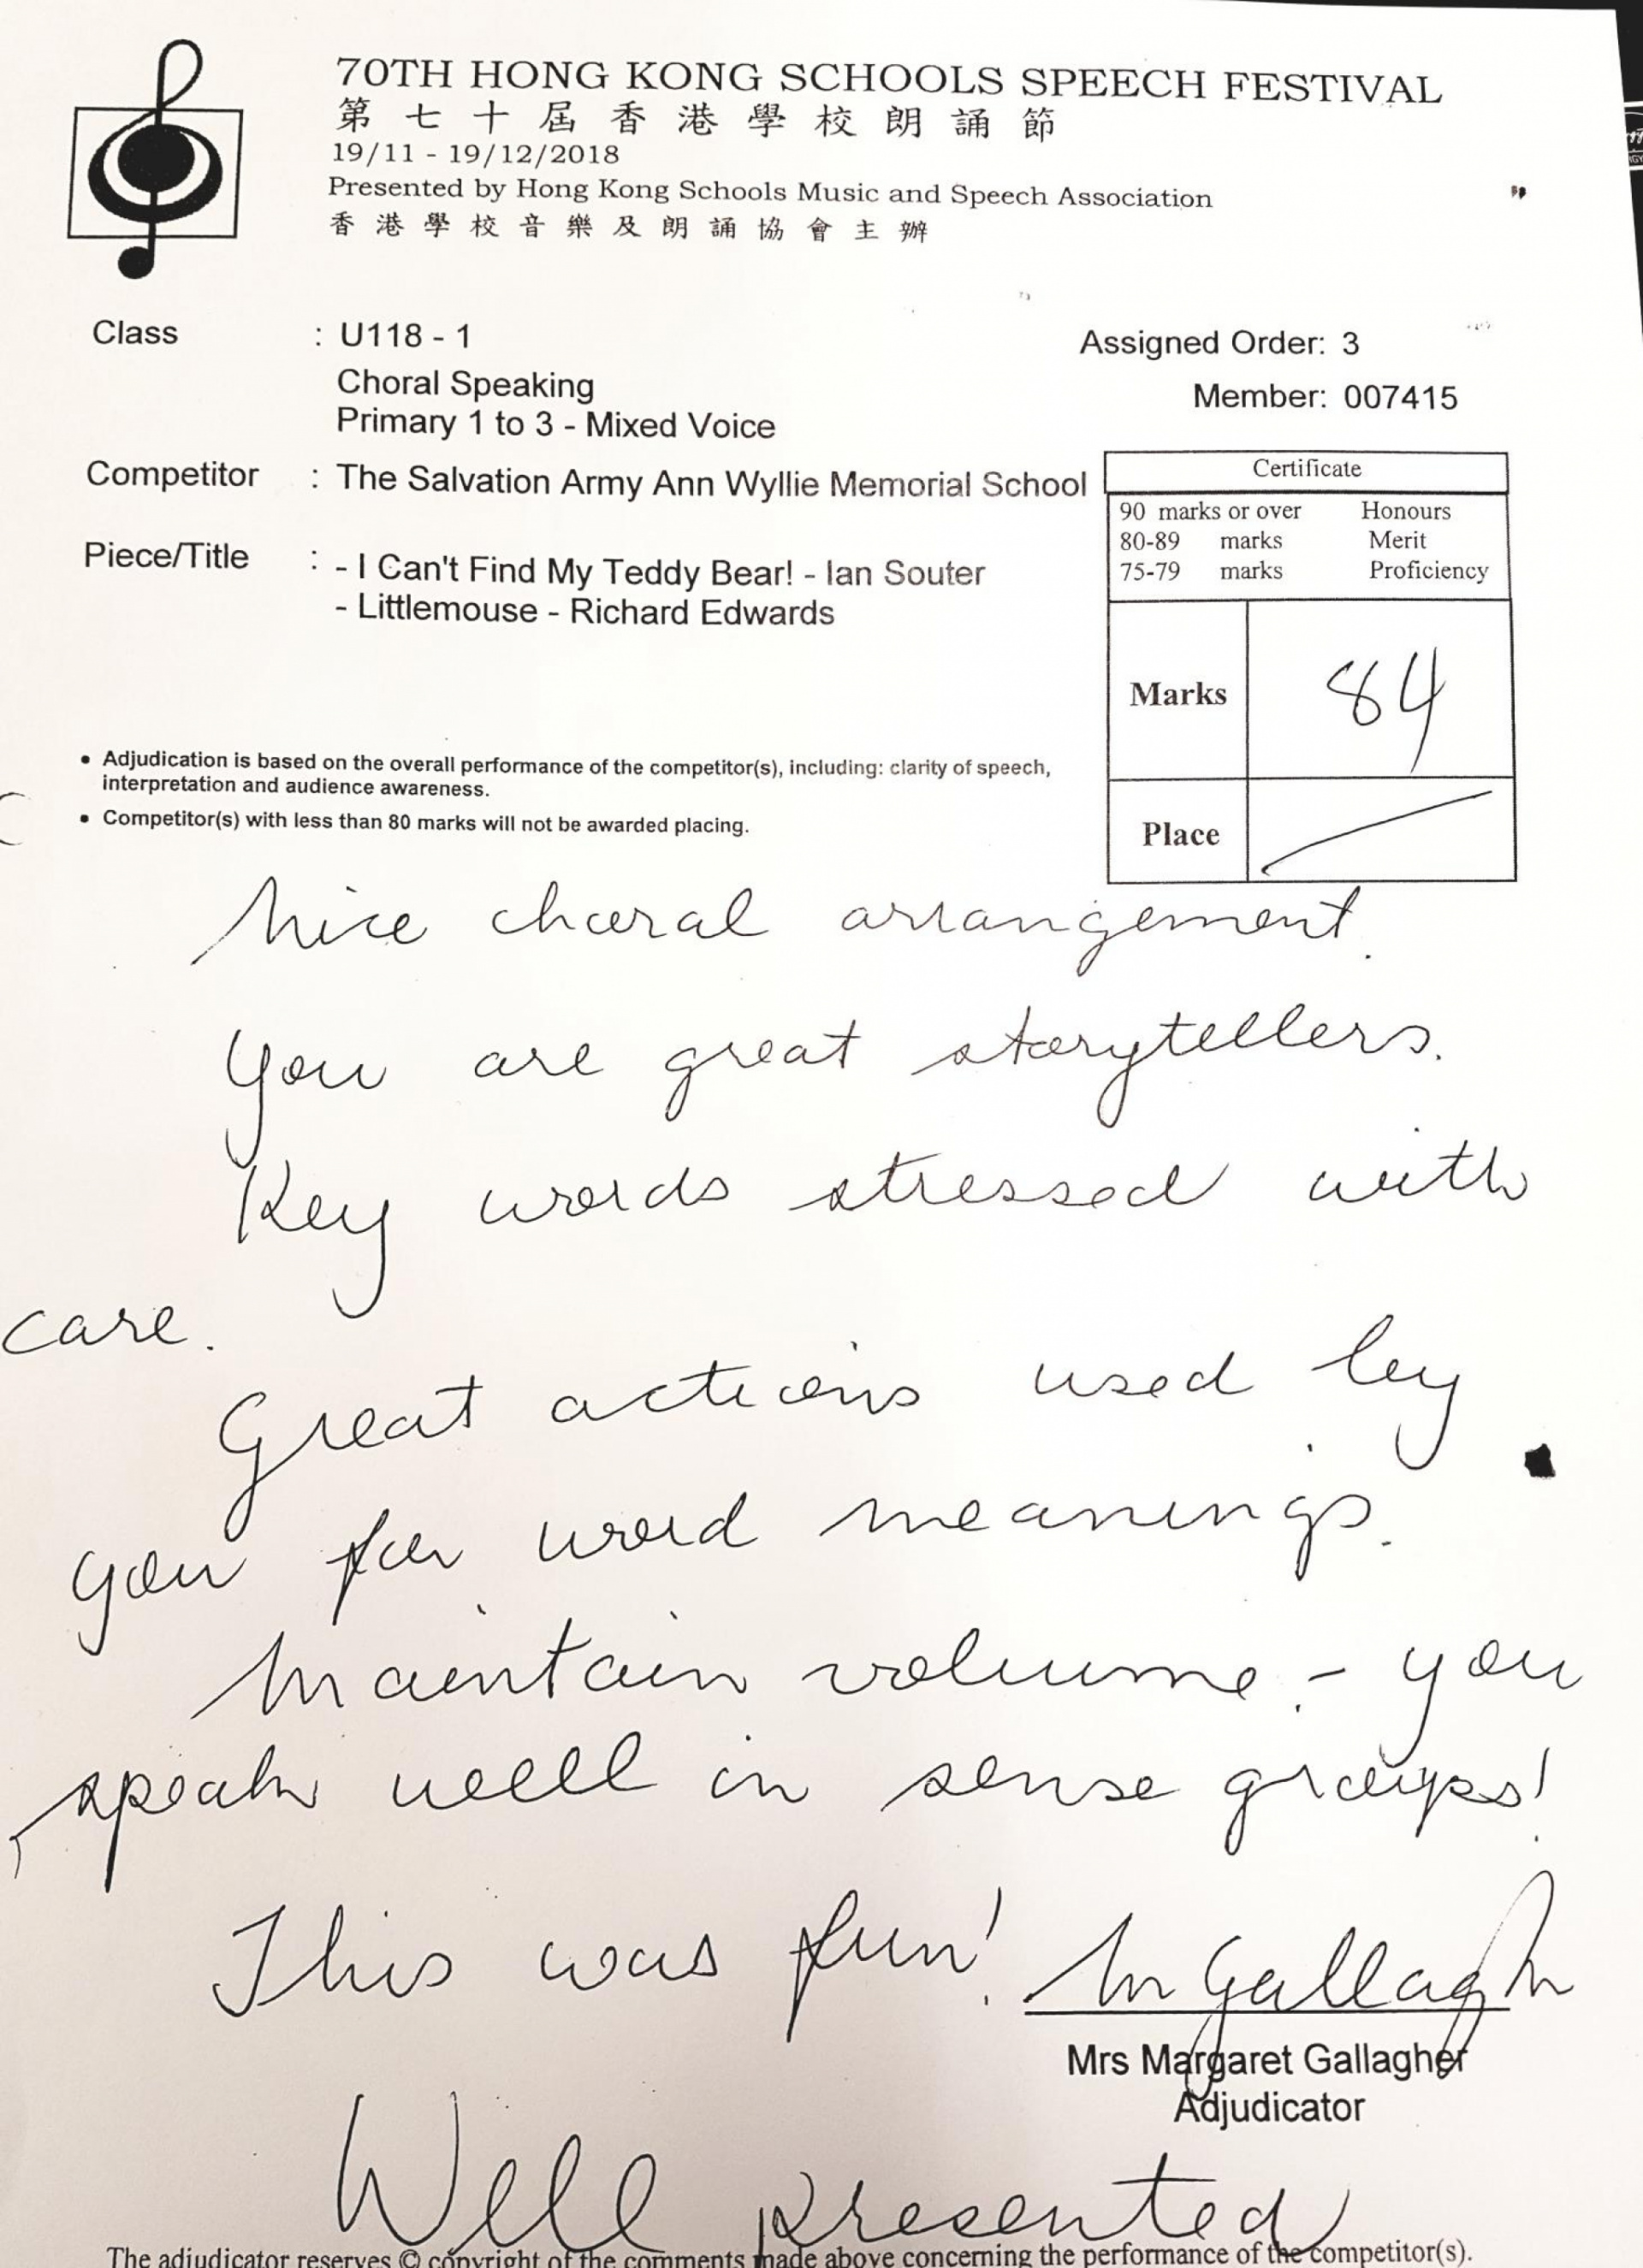 70TH HONG KONG SCHOOLS SPEECH FESTIVAL
第七十屆香港學校朗誦節
19/11 - 19/12/2018
Presented by Hong Kong Schools Music and Speech Association
香港學校音樂及朗誦協會主辦
Class : U118 - 1
Assigned Order: 3
Choral Speaking
Member: 007415
Primary 1 to 3 - Mixed Voice
Competitor : The Salvation Army Ann Wyllie Memorial School
Certificate
90 marks or over Honours
80-89 marks Merit
75-79 marks Proficiency
Piece/Title : - I Can't Find My Teddy Bear! - Ian Souter
- Littlemouse - Richard Edwards
Marks 84
• Adjudication is based on the overall performance of the competitor(s), including: clarity of speech,
interpretation and audience awareness.
• Competitor(s) with less than 80 marks will not be awarded placing.
Place
Nice choral arrangement.
You are great storytellers.
Key words stressed with
care.
Great actions used by
you for word meanings.
Maintain volume - you
speak well in sense groups!
This was fun! M Gallagher
Mrs Margaret Gallagher
Adjudicator
Well presented
The adjudicator reserves © copyright of the comments made above concerning the performance of the competitor(s).